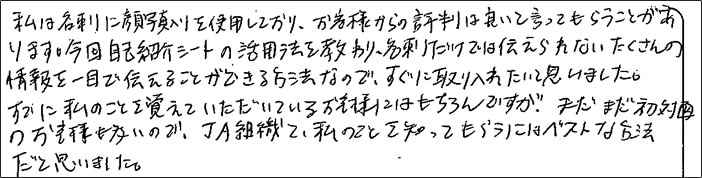 私は名刺に顔写真入りを使用しており、お客様からの評判は良いと言ってもらうことがあ
ります。今回自己紹介シートの活用法を教わり、名刺だけでは伝えられないたくさんの
情報を一目で伝えることができる方法なので、すぐに取り入れたいと思いました。
すでに私のことを覚えていただいているお客様にはもちろんですが、まだまだ初対面
のお客様も多いので、JA組織で、私のことを知ってもらうにはベストな方法
だと思いました。